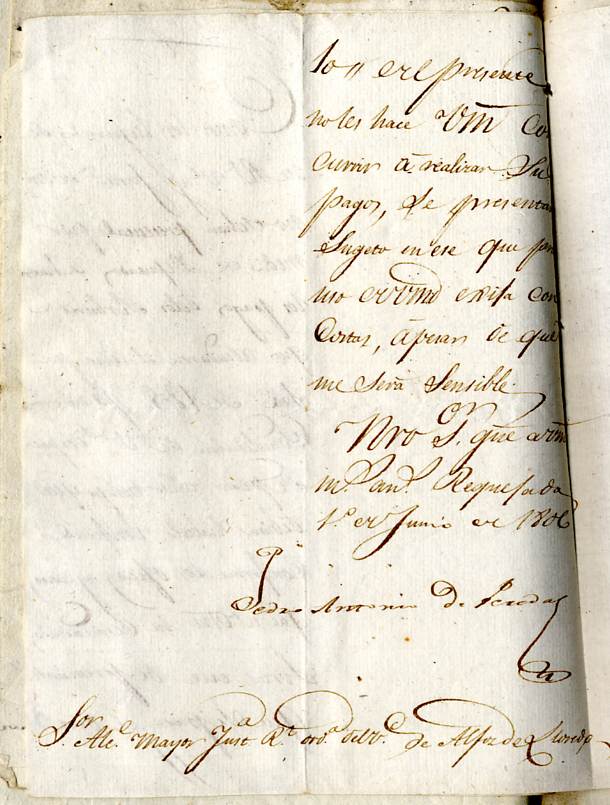 to, y el presente
no les hace Vm Co
currir á realizar Su
pagos, Se presentar
Sugeto en ese que por
uso de Vmd exija con
Costas, ápesar de que
me Será Sensible
Nro Sor gue a Vm
ms. ans. Requejada
1º de Junio de 1806
Pedro Antonio De Pereda
Sor Alce. Mayor Justa Rl ordª del Ve. de Alfoz de Lloredo